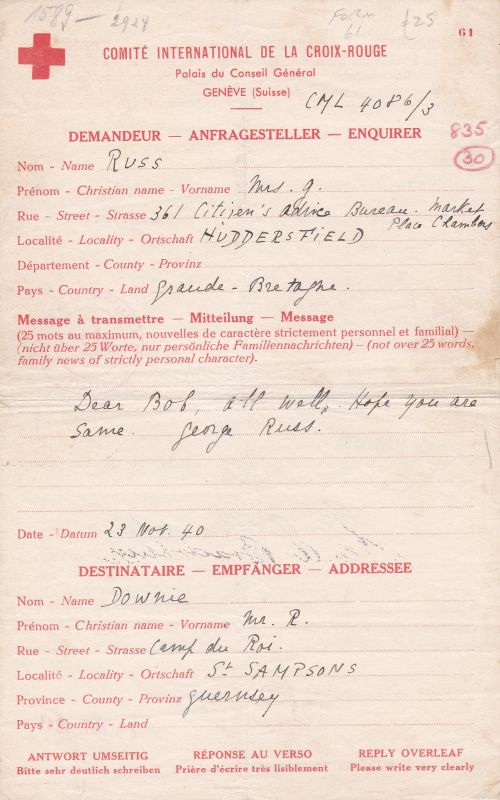 1589 - 2924
FORM 61
£25
61
COMITÉ INTERNATIONAL DE LA CROIX-ROUGE
Palais du Conseil Général
GENÈVE (Suisse)
CML 4086/3
DEMANDEUR — ANFRAGESTELLER — ENQUIRER
835
30
Nom - Name Russ
Prénom - Christian name - Vorname Mrs. G.
Rue - Street - Strasse 361 Citizen's Advice Bureau. Market
Place Chambers
Localité - Locality - Ortschaft HUDDERSFIELD
Département - County - Provinz
Pays - Country - Land Grande-Bretagne.
Message à transmettre — Mitteilung — Message
(25 mots au maximum, nouvelles de caractère strictement personnel et familial) —
(nicht über 25 Worte, nur persönliche Familiennachrichten) — (not over 25 words,
family news of strictly personal character).
Dear Bob, all well. Hope you are
same. George Russ.
Date - Datum 23 Nov. 40
DESTINATAIRE — EMPFÄNGER — ADDRESSEE
Nom - Name Downie
Prénom - Christian name - Vorname Mr. R.
Rue - Street - Strasse Camp du Roi.
Localité - Locality - Ortschaft St SAMPSONS
Province - County - Provinz Guernsey
Pays - Country - Land
ANTWORT UMSEITIG RÉPONSE AU VERSO REPLY OVERLEAF
Bitte sehr deutlich schreiben Prière d'écrire très lisiblement Please write very clearly